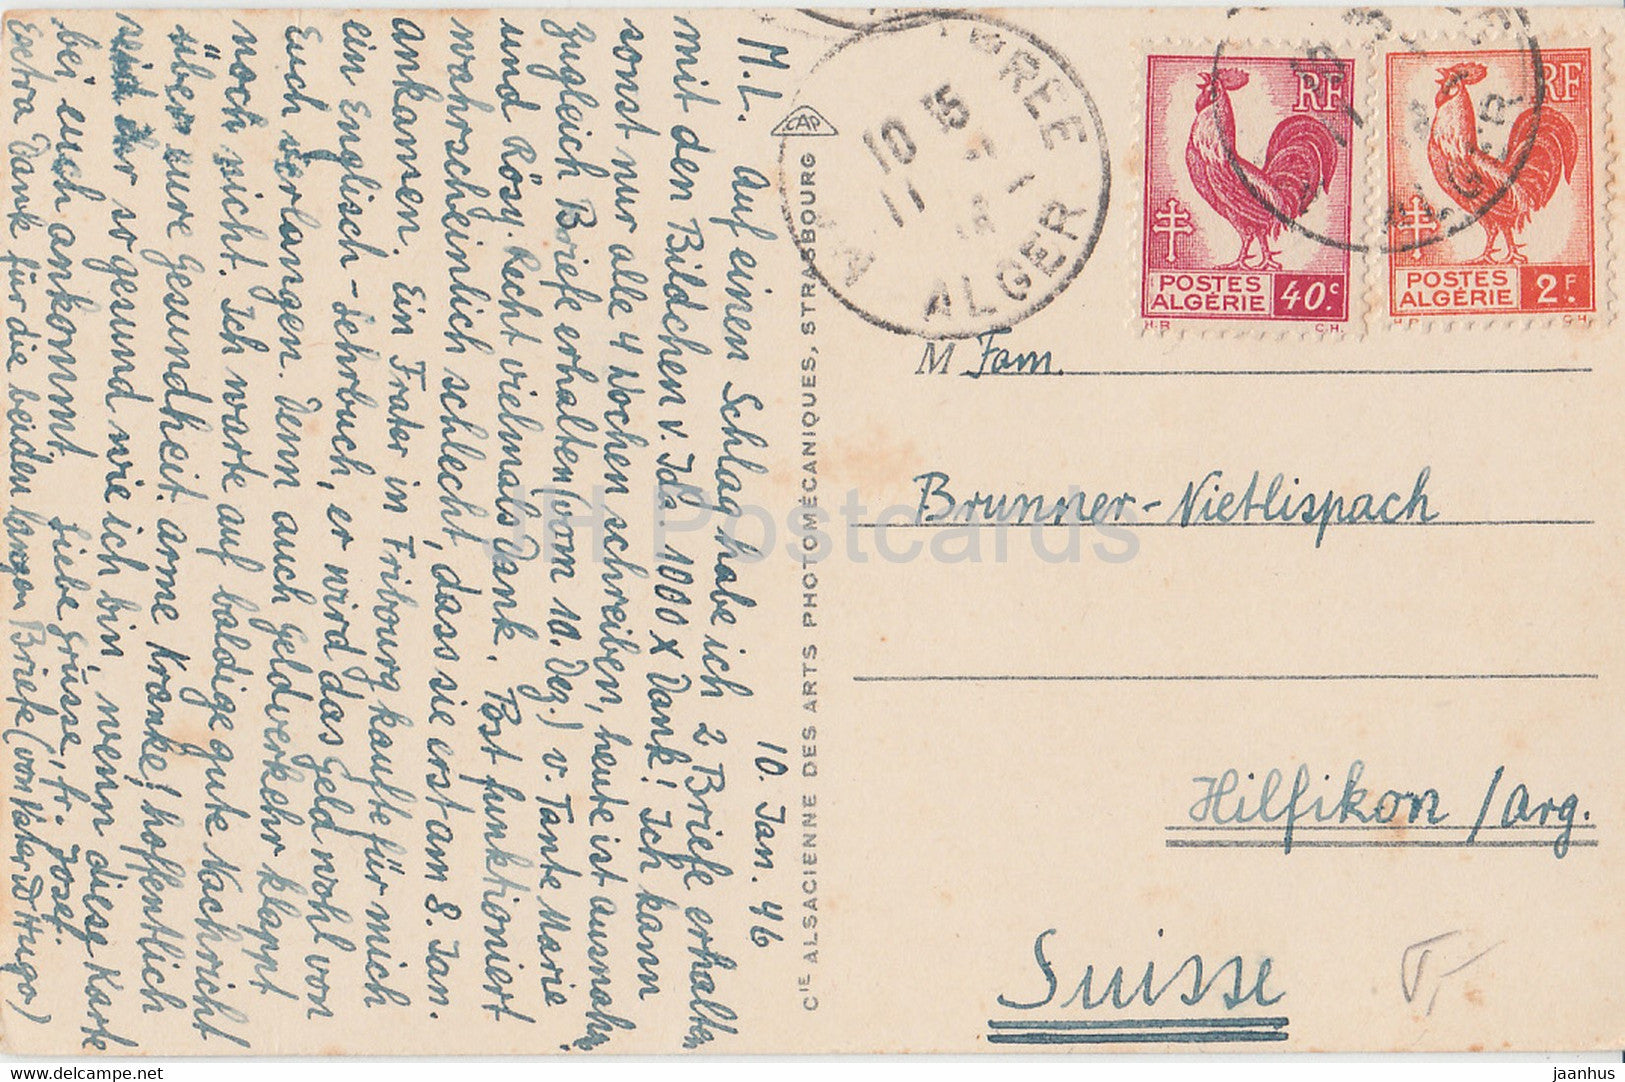 10. Jan. 46
M.L. Auf einen Schlag habe ich 2 Briefe erhalten
mit den Bildchen v. Ida 1000 x Dank! Ich kann
sonst nur alle 4 Wochen schreiben, heute ist ausnahm
zugleich Briefe erhalten (vom 10. Dez.) v. Tante Marie
und Rösy. Recht vielmals Dank. Post funktioniert
wahrscheinlich schlecht, dass sie erst am 8. Jan.
ankamen. Ein Frater in Fribourg kaufte für mich
ein Englisch-Lehrbuch, er wird das Geld wohl von
Euch verlangen. Denn auch Geldverkehr klappt
noch nicht. Ich warte auf baldige gute Nachricht
über eure Gesundheit. arme Kranke! hoffentlich
seid ihr so gesund wie ich bin, wenn diese Karte
bei euch ankommt. Liebe Grüsse, fr. Josef.
Extra Danke für die beiden langen Briefe (von Vater & Hugo)
CIE ALSACIENNE DES ARTS PHOTOMÉCANIQUES, STRASBOURG
CAP
10 15
11
ALGER
RF
POSTES
ALGÉRIE
40c
H.R
C.H.
RF
POSTES
ALGÉRIE
2F.
H.R
C.H.
ALGER
M Fam.
Brunner-Nietlispach
Hilfikon /Arg.
Suisse
T
JH Postcards
jaanhus
www.delcampe.net